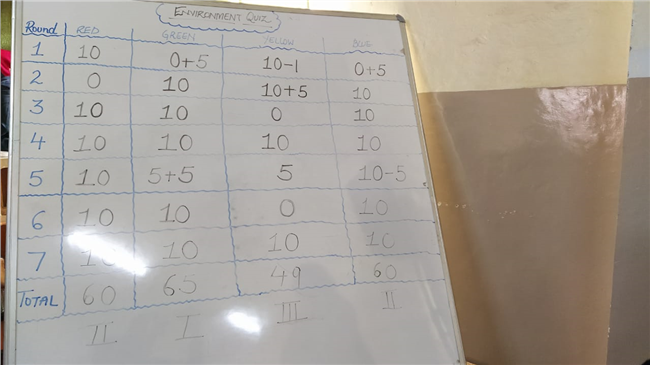 ENVIRONMENT QUIZ
Round RED GREEN YELLOW BLUE
1 10 0+5 10-1 0+5
2 0 10 10+5 10
3 10 10 0 10
4 10 10 10 10
5 10 5+5 5 10-5
6 10 10 0 10
7 10 10 10
TOTAL 60 65 49 60
II I III II